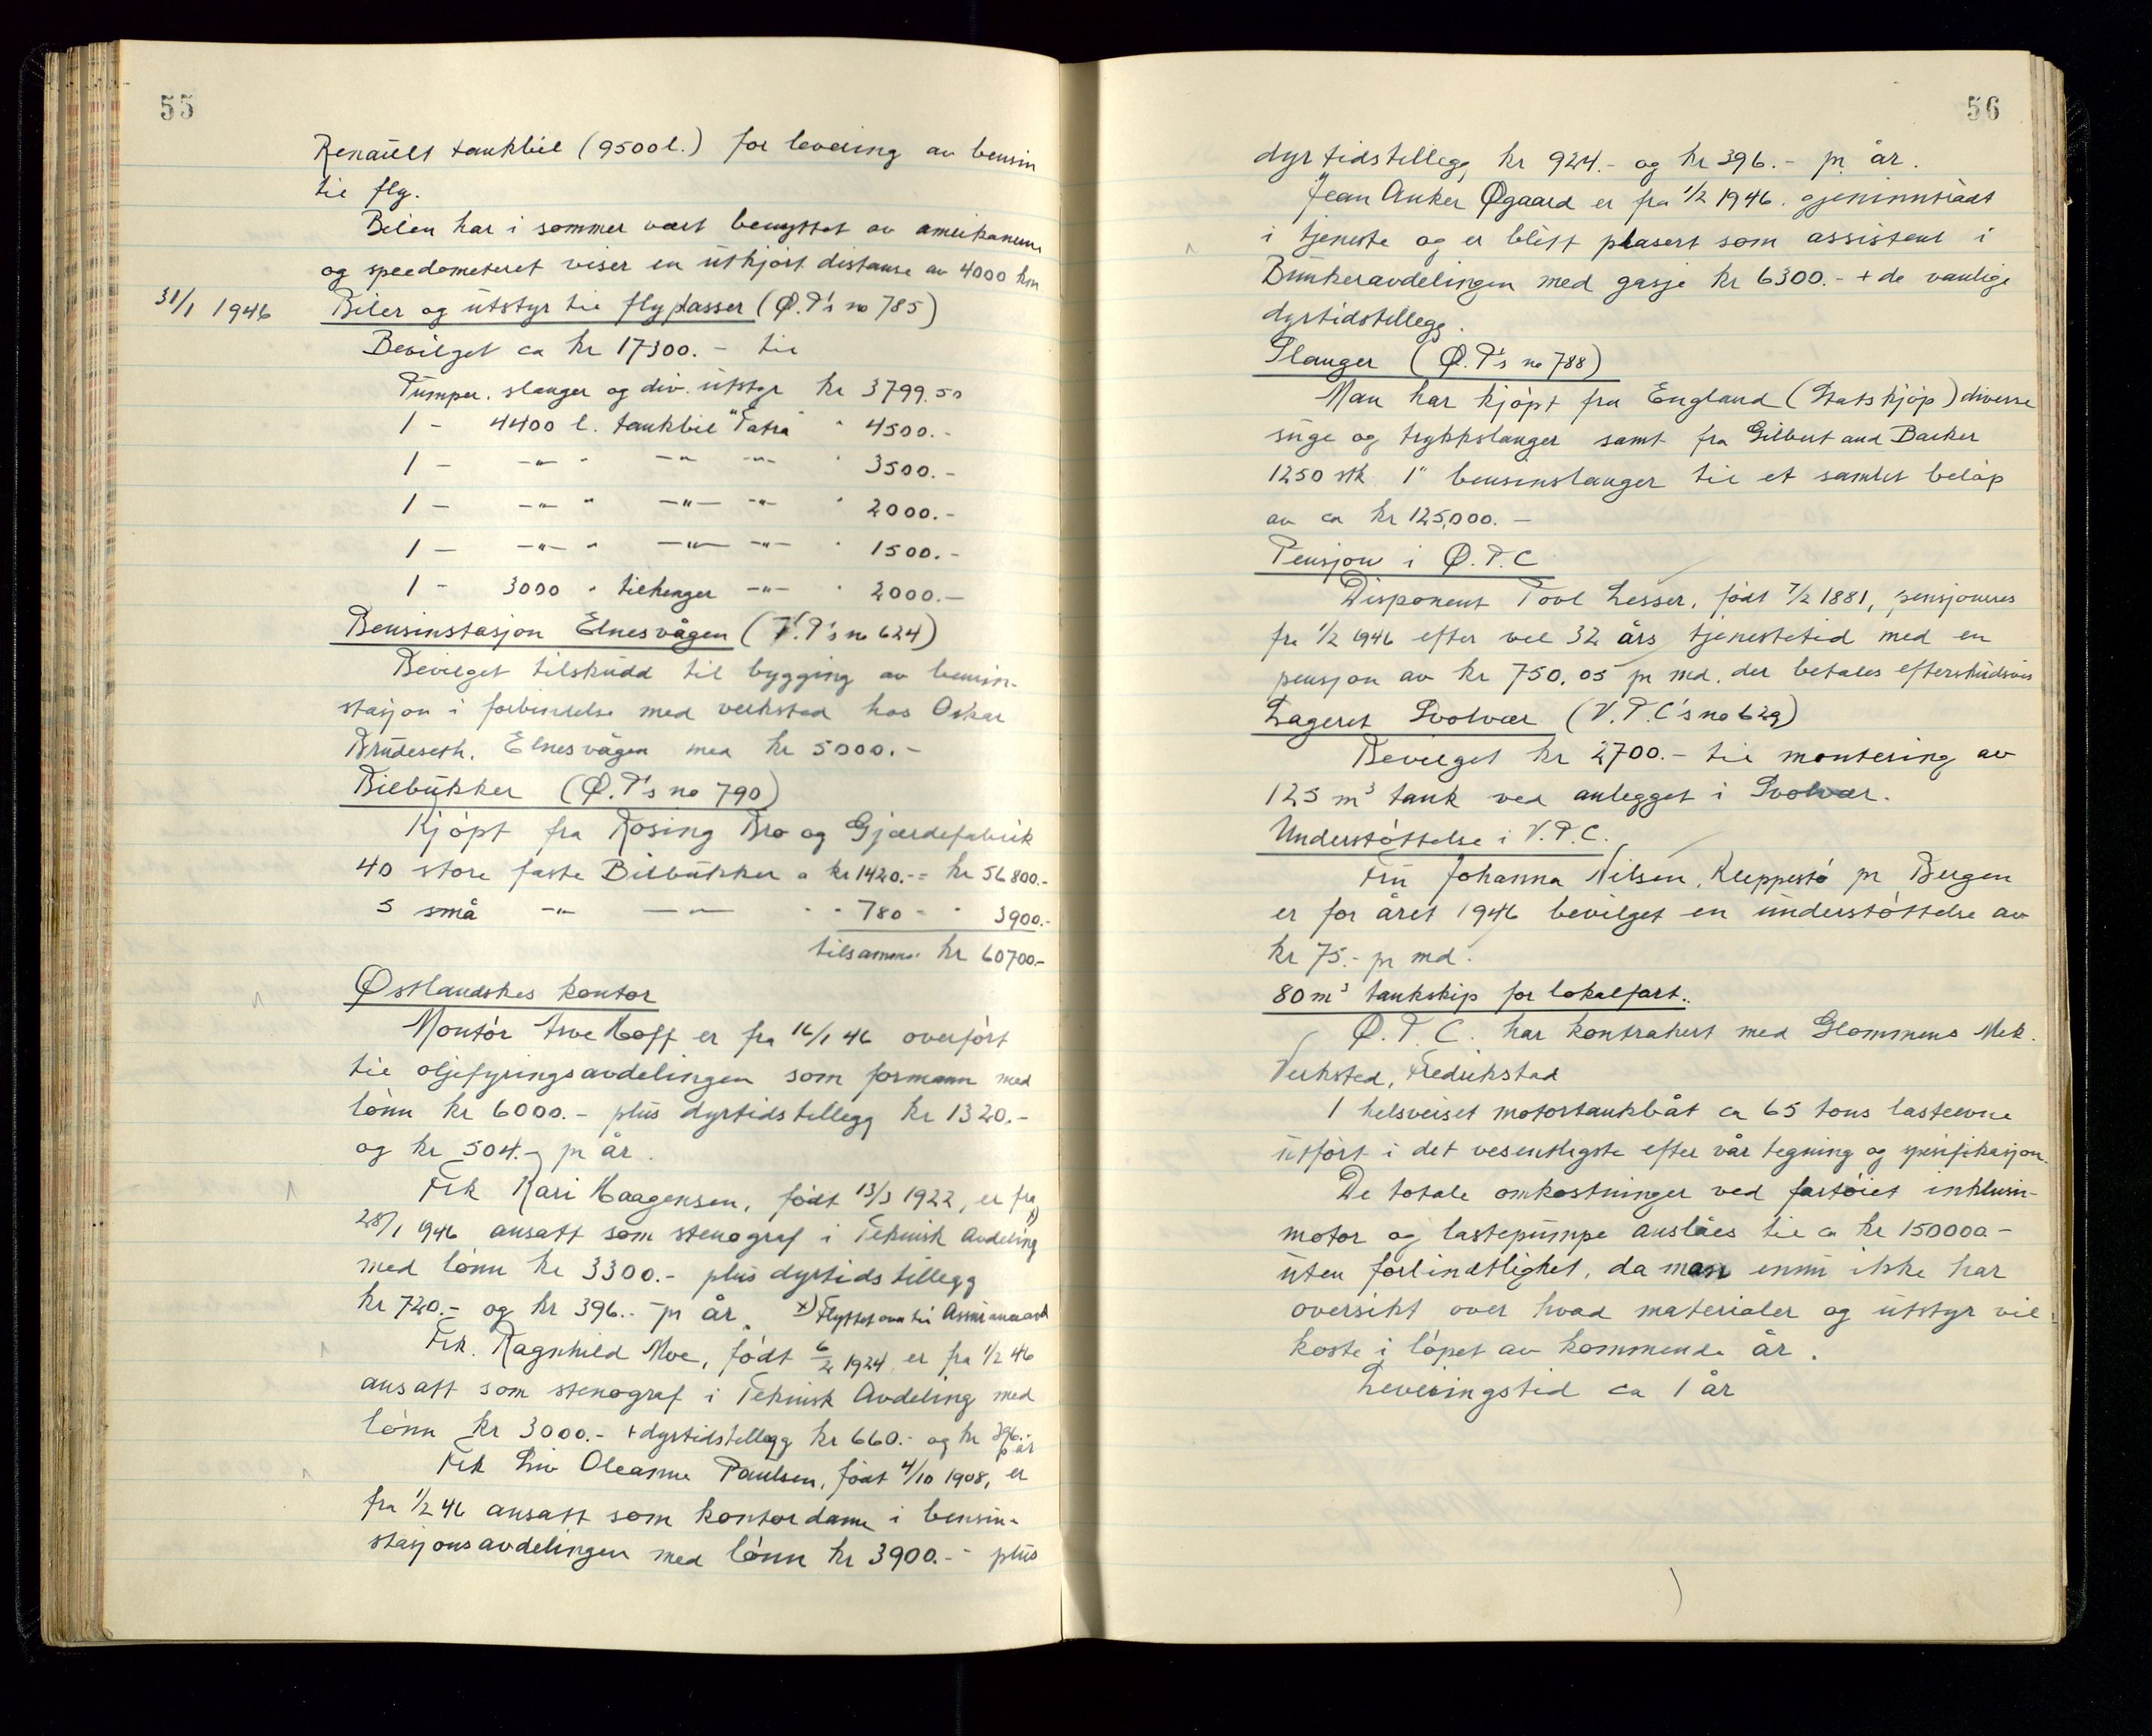 55
Renault tankbil (9500 l.) for levering av bensin
til fly.
Bilen har i sommer vært benyttet av amerikanerne
og speedometeret viser en utkjørt distanse av 4000 km
31/1 1946 Biler og utstyr til flyplasser (Ø.P's no 785)
Bevilget ca kr 17300.- til
Pumper, slanger og div. utstyr kr 3799.50
1 - 4400 l. tankbil "Tatra" " 4500.-
1 - -"- " -"- -"- " 3500.-
1 - -"- " -"- -"- " 2000.-
1 - -"- " -"- -"- " 1500.-
1 - 3000 " tilhenger -"- " 2000.-
Bensinstasjon Elnesvågen (V.P's no 624)
Bevilget tilskudd til bygging av bensin-
stasjon i forbindelse med verksted hos Oskar
Brudeseth, Elnesvågen med kr 5000.-
Bilbukker (Ø.P's no 790)
Kjøpt fra Rosing Bro og Gjærdefabrik
40 store faste Bilbukker a kr 1420.- = kr 56800.-
5 små -"- -"- " " 780 - " 3900.-
tilsammen kr 60700.-
Østlandskes kontor
Montør Arve Hoff er fra 16/1 46 overført
til oljefyringsavdelingen som formann med
lønn kr 6000.- plus dyrtidstillegg kr 1320.-
og kr 504.- pr år.
Frk Kari Haagensen, født 13/3 1922, er fra
28/1 1946 ansatt som stenograf i Teknisk Avdeling x)
med lønn kr 3300.- plus dyrtidstillegg
kr 720.- og kr 396.- pr år. x) Flyttet over til Assuranseavd
Frk. Ragnhild Moe, født 6/2 1924, er fra 1/2 46
ansatt som stenograf i Teknisk Avdeling med
lønn kr 3000.- + dyrtidstillegg kr 660.- og kr 396.- p år
Frk Liv Oleanne Paulsen, født 4/10 1908, er
fra 1/2 46 ansatt som kontordame i bensin-
stasjonsavdelingen med lønn kr 3900.- plus
56
dyrtidstillegg kr 924.- og kr 396.- pr. år.
Jean Anker Øgaard er fra 1/2 1946 gjeninntrådt
i tjeneste og er blitt plasert som assistent i
Bunkeravdelingen med gasje kr 6300.- + de vanlige
dyrtidstillegg.
Slanger (Ø.P's no 788)
Man har kjøpt fra England (Statskjøp) diverse
suge og trykkslanger samt fra Gilbert and Barker
1250 stk 1" bensinslanger til et samlet beløp
av ca kr 125,000.-
Pensjon i Ø.P.C
Disponent Tovl Lesser, født 7/2 1881, pensjoneres
fra 1/2 1946 efter vel 32 års tjenestetid med en
pensjon av kr 750,05 pr md. der betales efterskudsvis
Lageret Svolvær (V.P.C's no 629)
Bevilget kr 2700.- til montering av
125 m³ tank ved anlegget i Svolvær.
Understøttelse i V.P.C.
Fru Johanna Nilsen, Kleppestø pr Bergen
er for året 1946 bevilget en understøttelse av
kr 75.- pr md.
80 m³ tankskip for lokalfart.
Ø.P.C. har kontrahert med Glommens Mek.
Verksted, Fredrikstad
1 helsveiset motortankbåt ca 65 tons lasteevne
utført i det vesentligste efter vår tegning og spesifikasjon.
De totale omkostninger ved fartøiet inklusiv-
motor og lastepumpe anslåes til ca kr 150000.-
uten forbindtlighet, da man ennu ikke har
oversikt over hvad materialer og utstyr vil
koste i løpet av kommende år.
Leveringstid ca 1 år